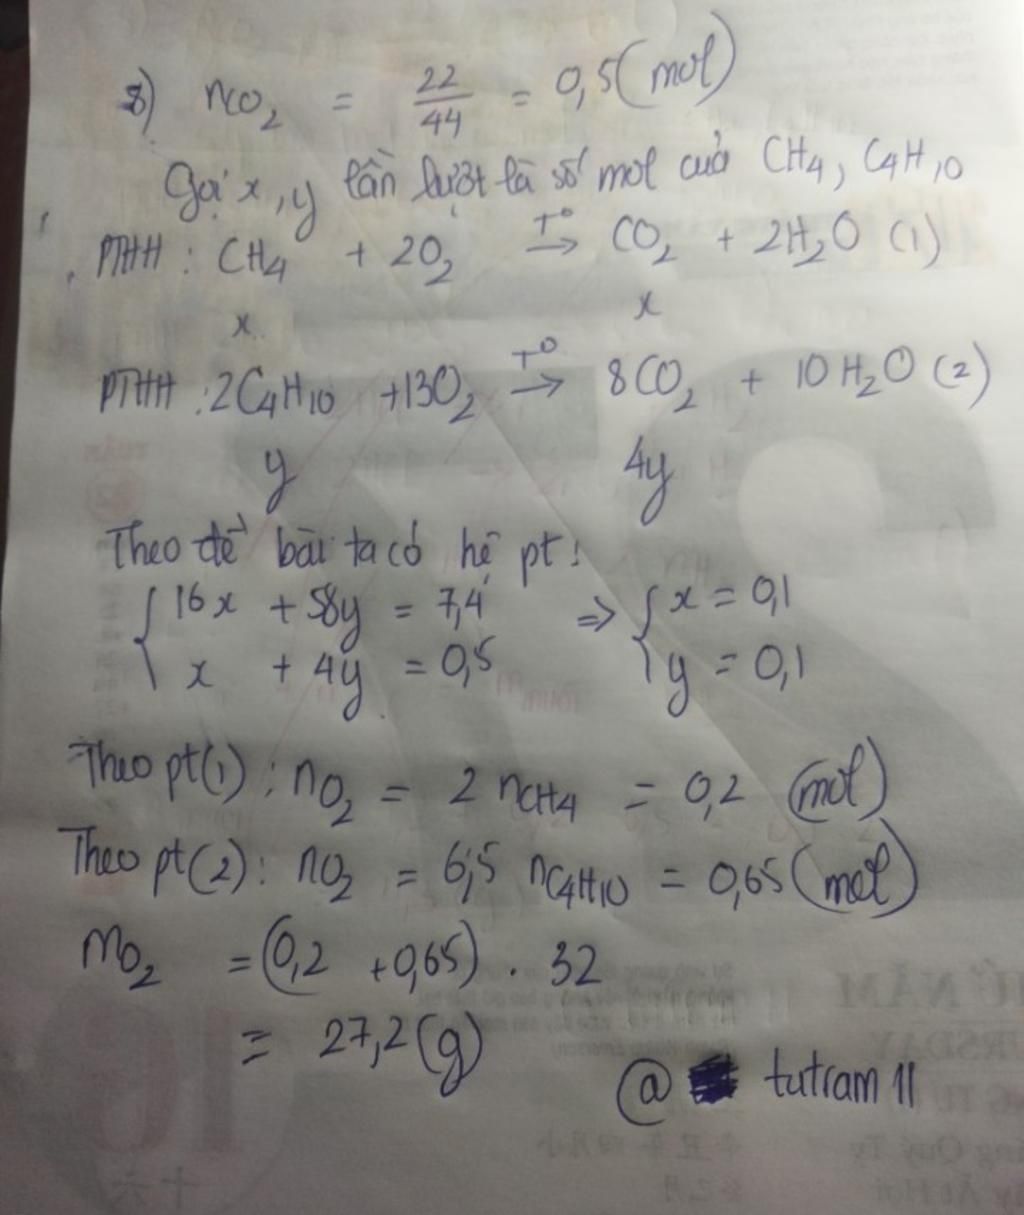 8) nCO₂ = 22/44 = 0,5 (mol)
Gọi x, y lần lượt là số mol của CH₄, C₄H₁₀
PTHH : CH₄ + 2O₂ →T° CO₂ + 2H₂O (1)
x x
PTHH : 2C₄H₁₀ + 13O₂ →T° 8CO₂ + 10H₂O (2)
y 4y
Theo đề bài ta có hệ pt:
{ 16x + 58y = 7,4 => { x = 0,1
x + 4y = 0,5 y = 0,1
Theo pt(1) : nO₂ = 2 nCH₄ = 0,2 (mol)
Theo pt(2) : nO₂ = 6,5 nC₄H₁₀ = 0,65 (mol)
mO₂ = (0,2 + 0,65) . 32
= 27,2 (g)
@ tutram 11